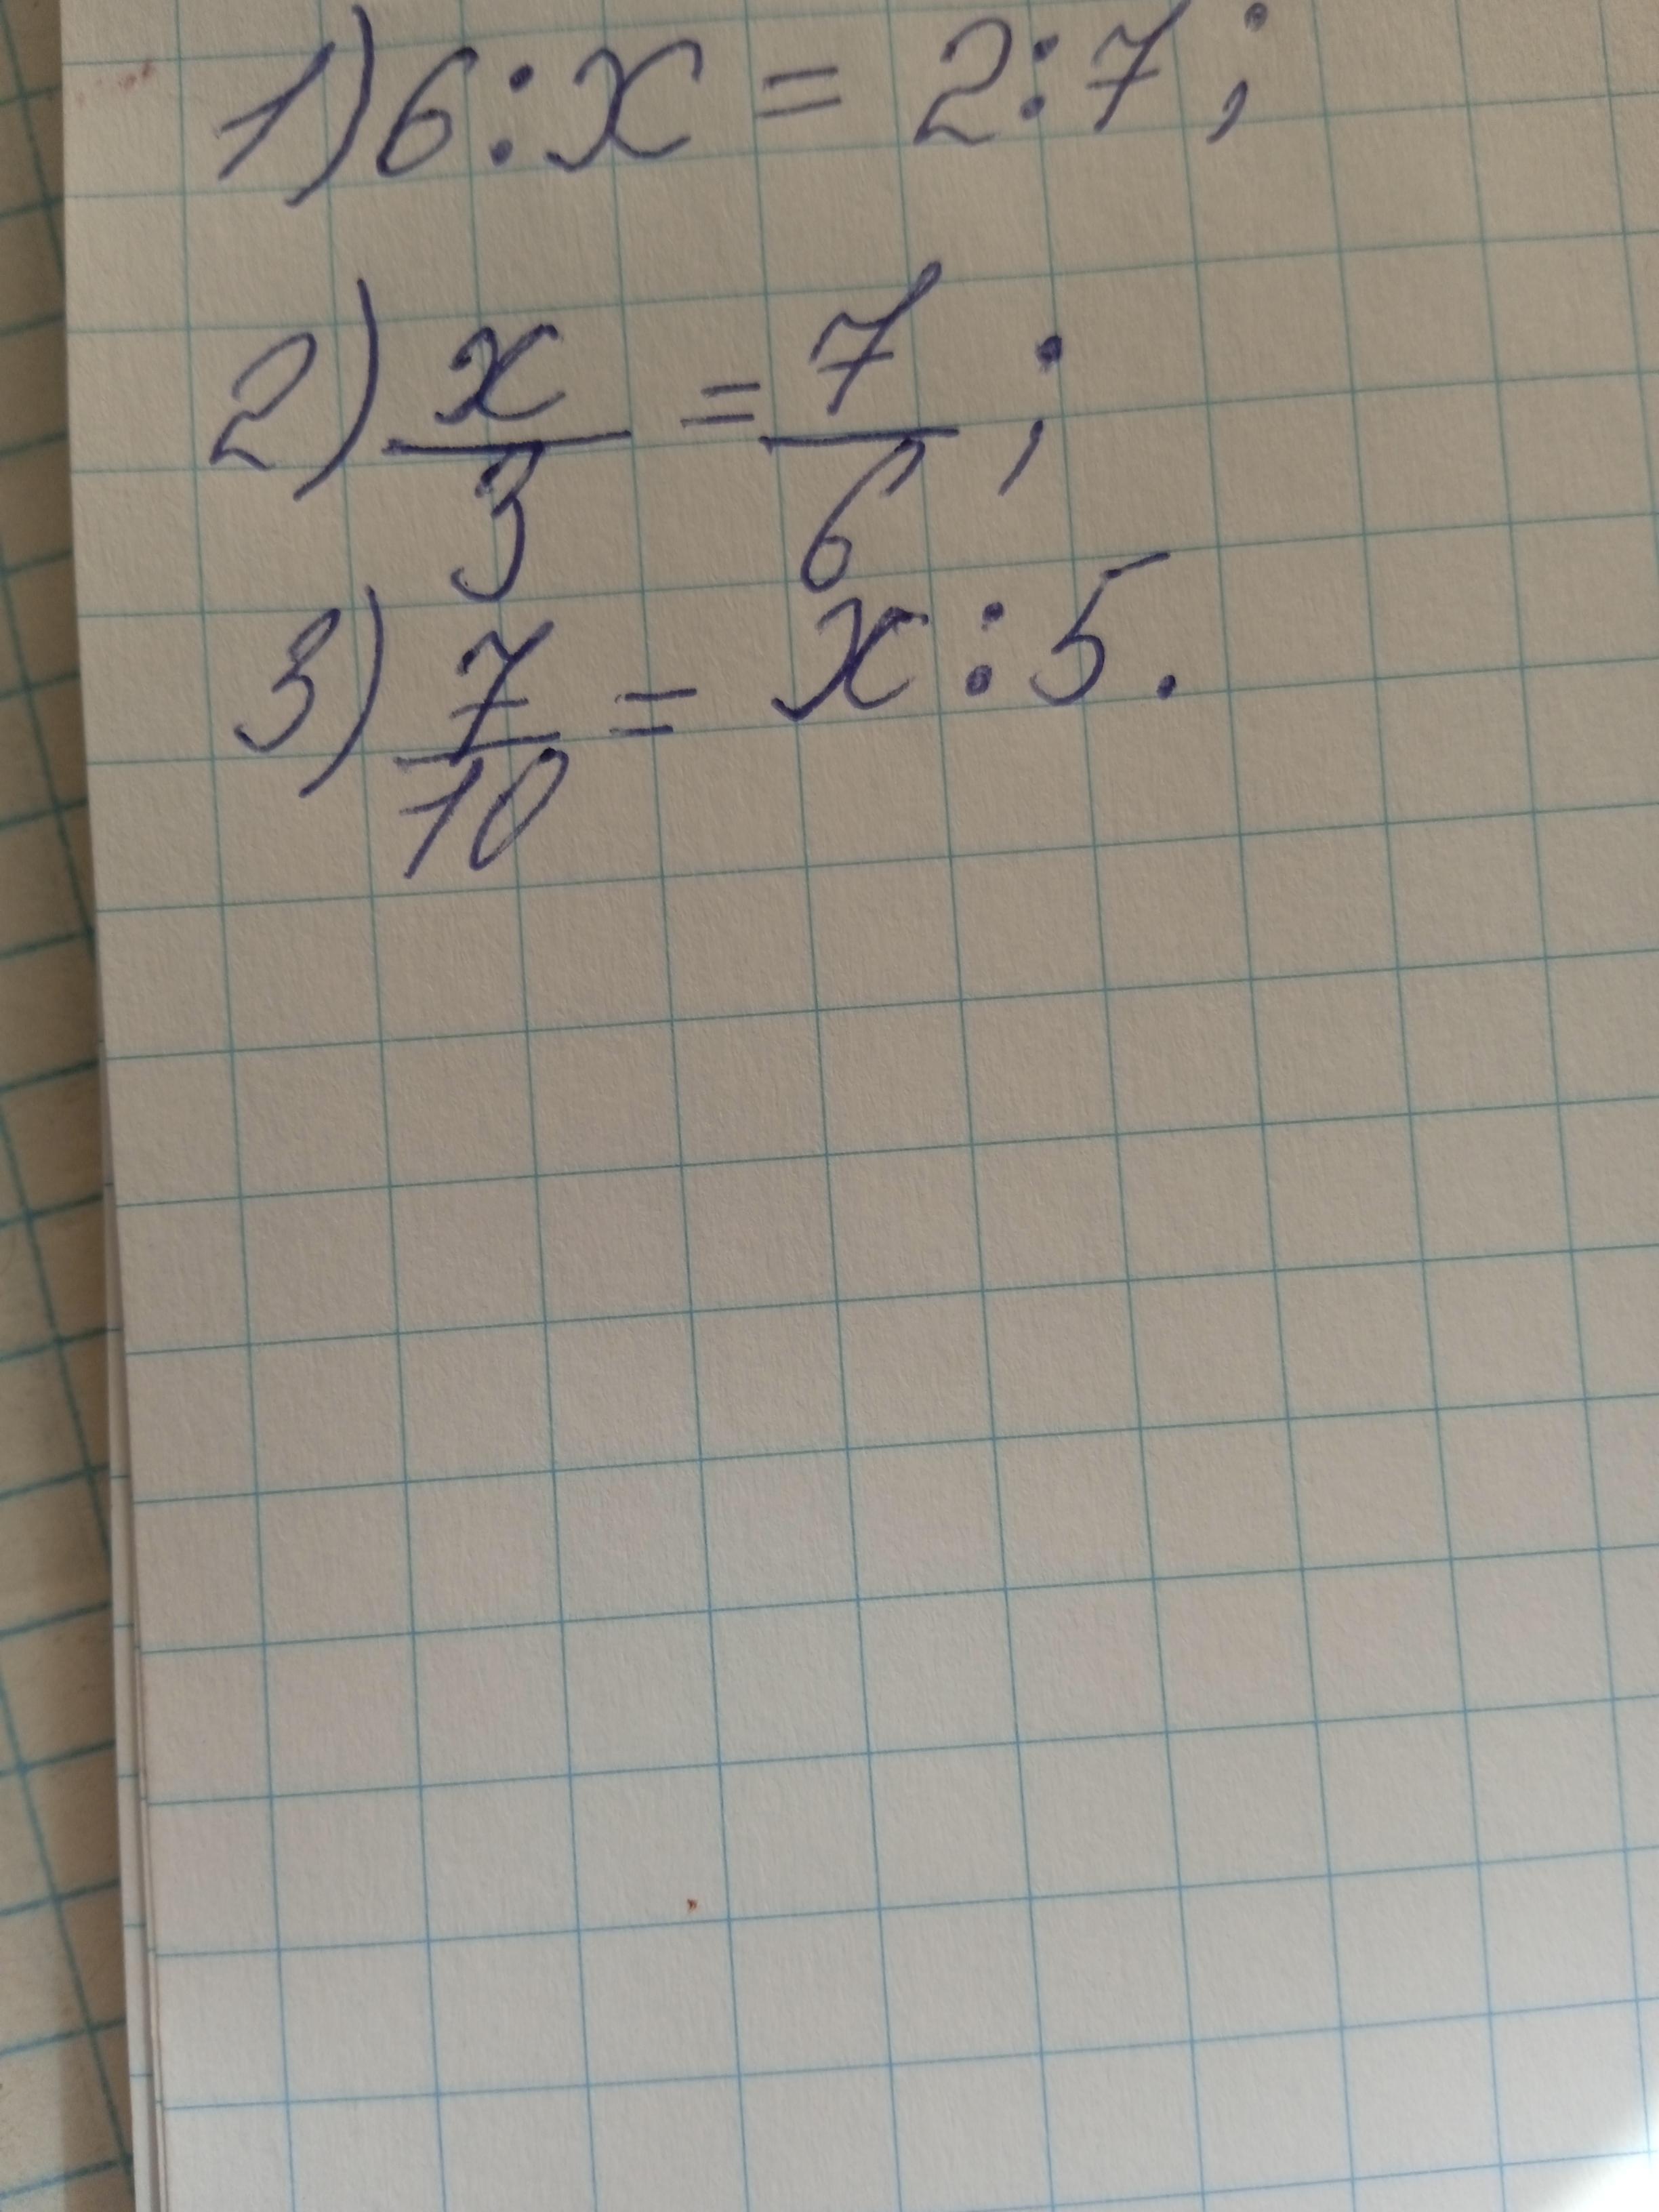 1) 6 : x = 2 : 7 ;
2) x/3 = 7/6 ;
3) 7/10 = x : 5.